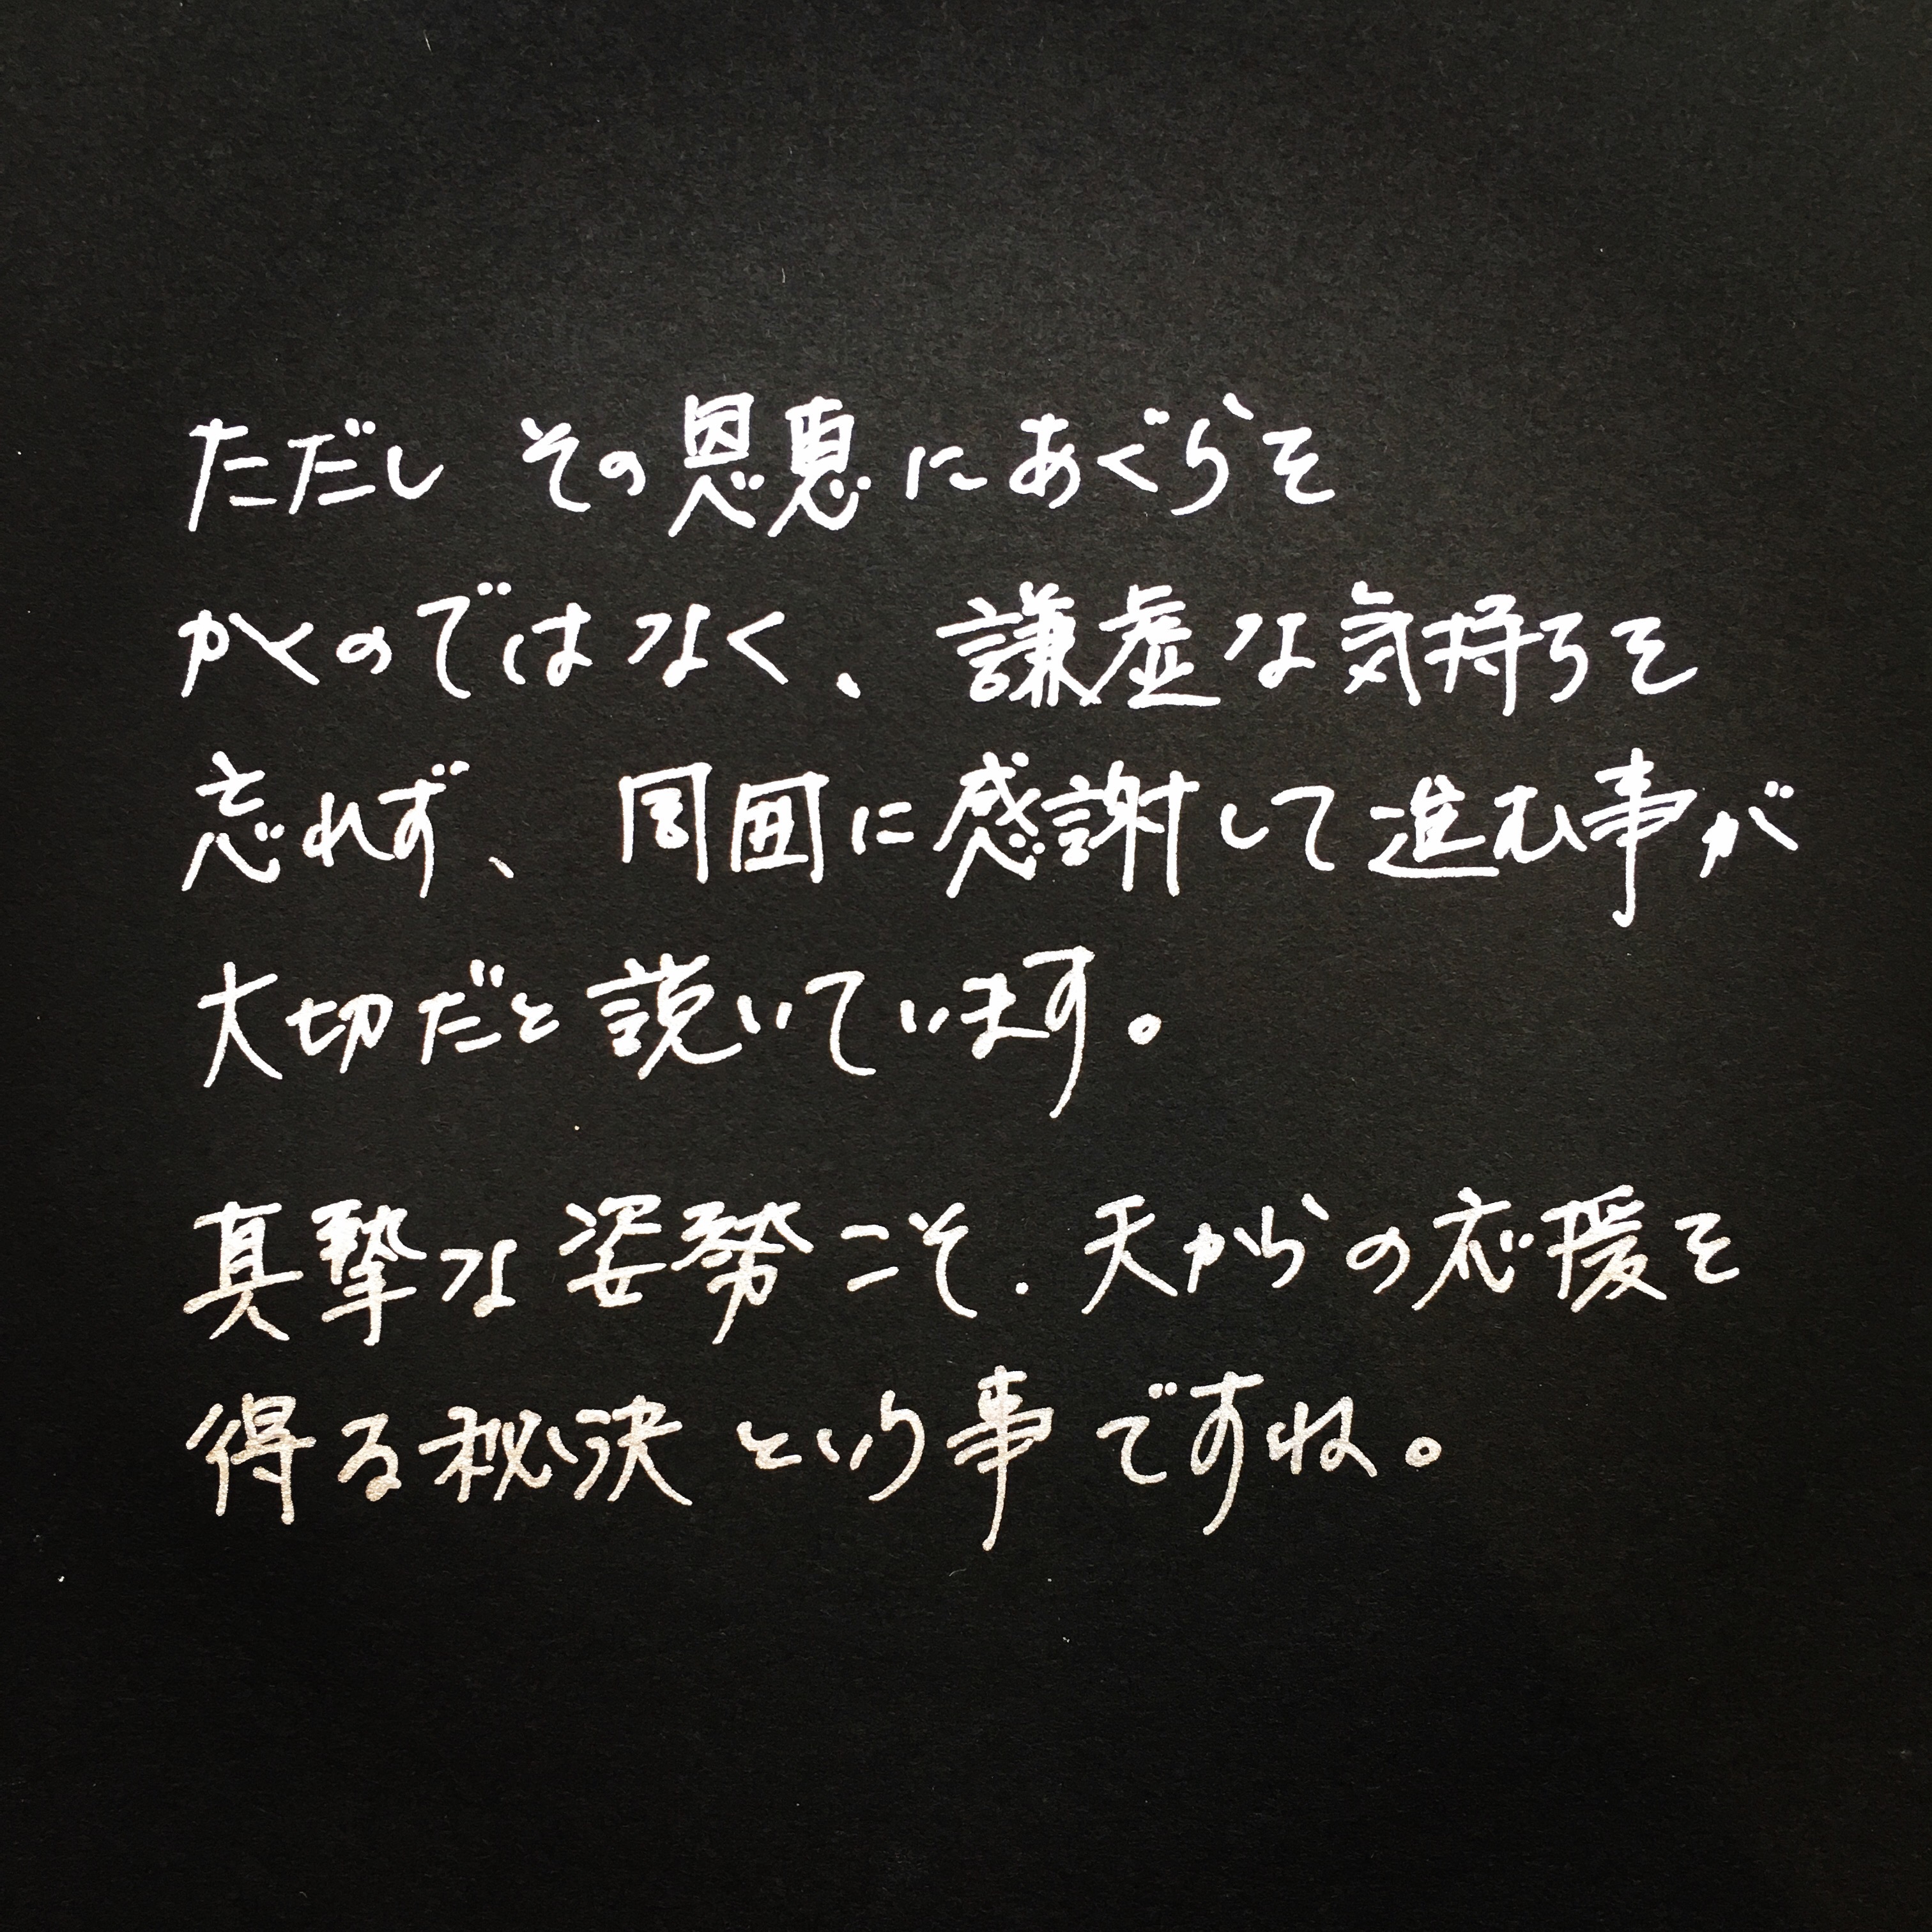 ただし その恩恵にあぐらを
かくのではなく、謙虚な気持ちを
忘れず、周囲に感謝して進む事が
大切だと説いています。
真摯な姿勢こそ、天からの応援を
得る秘訣という事ですね。